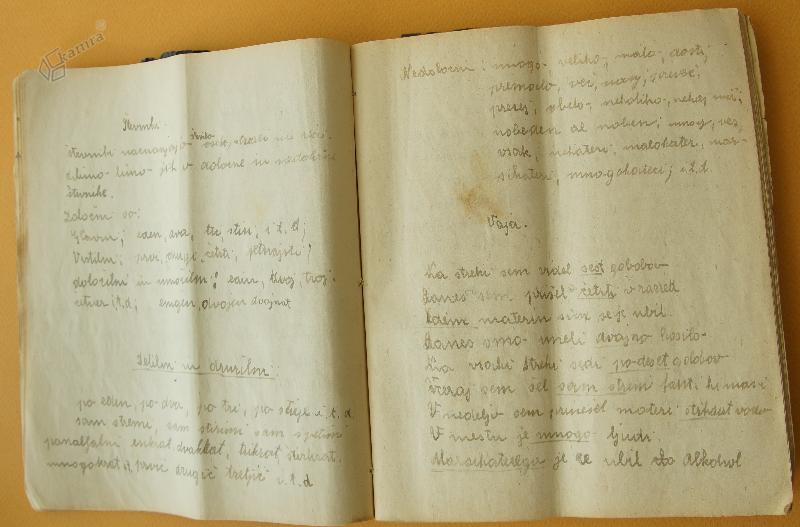 kamra
Števniki.
števniki naznanjajo število oseb, stvari in reči
delimo jih v določne in nedoločne
števnike.
Določni so:
Glavni; eden, dva, tri, štiri, i.t.d;
Vrstilni; prvi, drugi, četrti, petnajsti;
določilni in množilni; eden, dvoj, troj,
četver i.t.d; enojen, dvojen dvojnat
Delilni in družilni.
po eden, po dva, po tri, po štiri i.t.d.
sam stremi, sam štirimi sam s petimi
ponavljalni enkrat, dvakrat, trikrat štirikrat.
mnogokrat, prvič drugič tretjič i.t.d
Nedoločni: mnogo, veliko, malo, dosti,
premalo, več, manj,
precej, nekoliko, nekaj, nič,
nobeden ali noben; mnog, ves,
vsak, nekateri, malokater, mar-
sikateri, mnogokateri; i.t.d.
Vaja.
Na strehi sem videl šest golobov
Danes sem prišel četrti v razred
Eden materin sin se je ubil.
Danes smo imeli dvojno kosilo.
Na vsaki strehi sedi po deset golobov
Včeraj sem šel sam stremi fanti k maši
V nedeljo sem prinesel materi štirikrat vodo
V mestu je mnogo ljudi.
Marsikaterega je že ubil alkohol